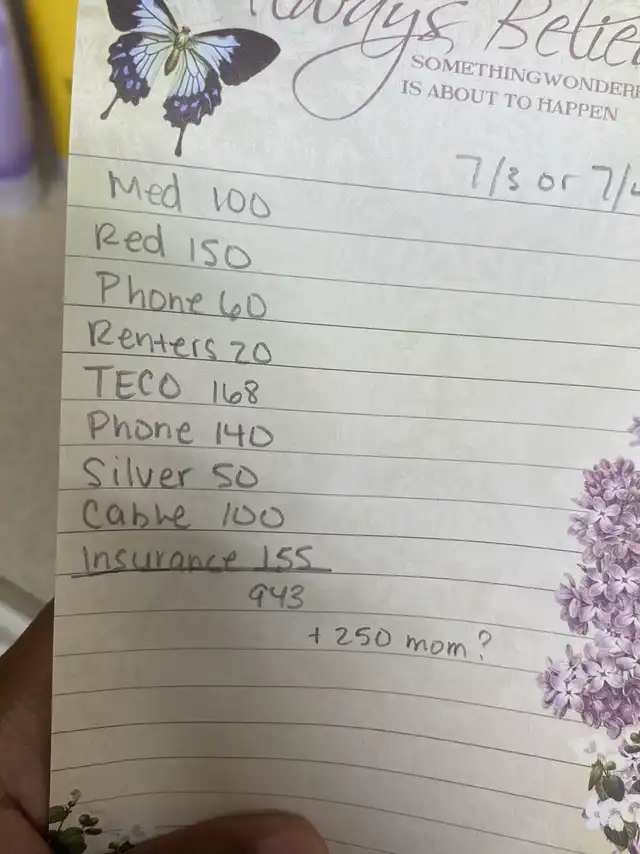 Always Believe
SOMETHING WONDERF
IS ABOUT TO HAPPEN
7/3 or 7/4
Med 100
Red 150
Phone 60
Renters 20
TECO 168
Phone 140
Silver 50
Cable 100
Insurance 155
943
+ 250 mom?